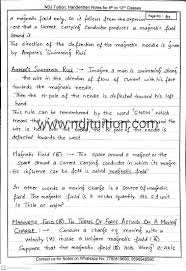 NDJ Tuition: Handwritten Notes for 6th to 12th Classes
a magnetic field only. So it follows from the experiment
that a current carrying conductor produces a magnetic field
around it
The direction of the deflection of the magnetic needle is
given by Ampere's Swimming Rule
AMPERE'S SWIMMING RULE :- Imagine a man is swimming along
the wire in the direction of current with his face
towards the magnetic needle.
Then the N-pole of the needle is deflected towards his left
hand.
This rule can be remembered by the word SNOW which
means that if the current is from South to North
the wire is held over the needle, the
N-pole of the needle is deflected towards West
Magnetic Field (B) :- The space around a magnet or the
space around a current carrying conductor in which its magnetic
influence can be felt is called magnetic field
In other words a moving charge is a source of magnetic
field. The magnetic field is a vector quantity. Its S.I unit
is Tesla or
MAGNETIC FIELD (B) IN TERMS OF FORCE ACTING ON A MOVING
CHARGE :- Consider a charge q moving with a
velocity (v) inside a uniform magnetic field (B)
Suppose that the magnetic field is along Z-axis
Contact us for Notes on Whatsapp No: